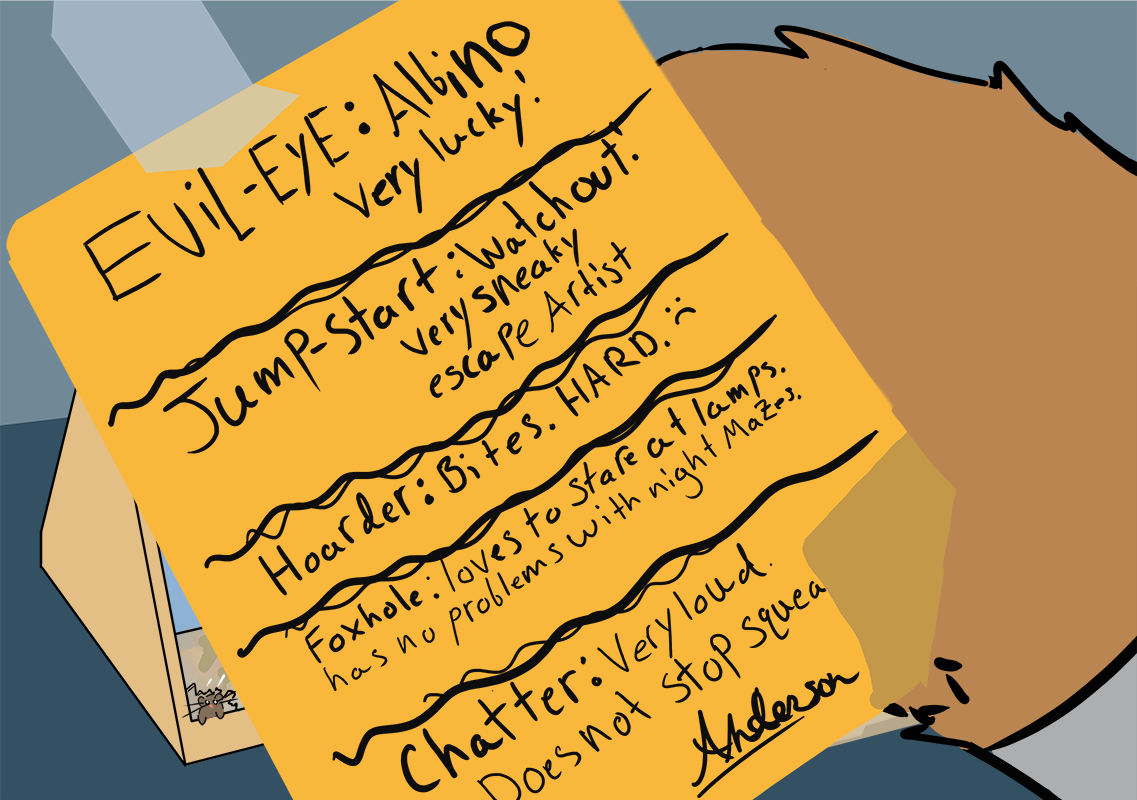 EViL-EyE: Albino
very lucky!
Jump-Start: Watchout.
very sneaky
escape Artist
Hoarder: Bites. HARD. :(
Foxhole: loves to stare at lamps.
has no problems with night Mazes.
Chatter: Very loud.
Does not stop squea
Anderson